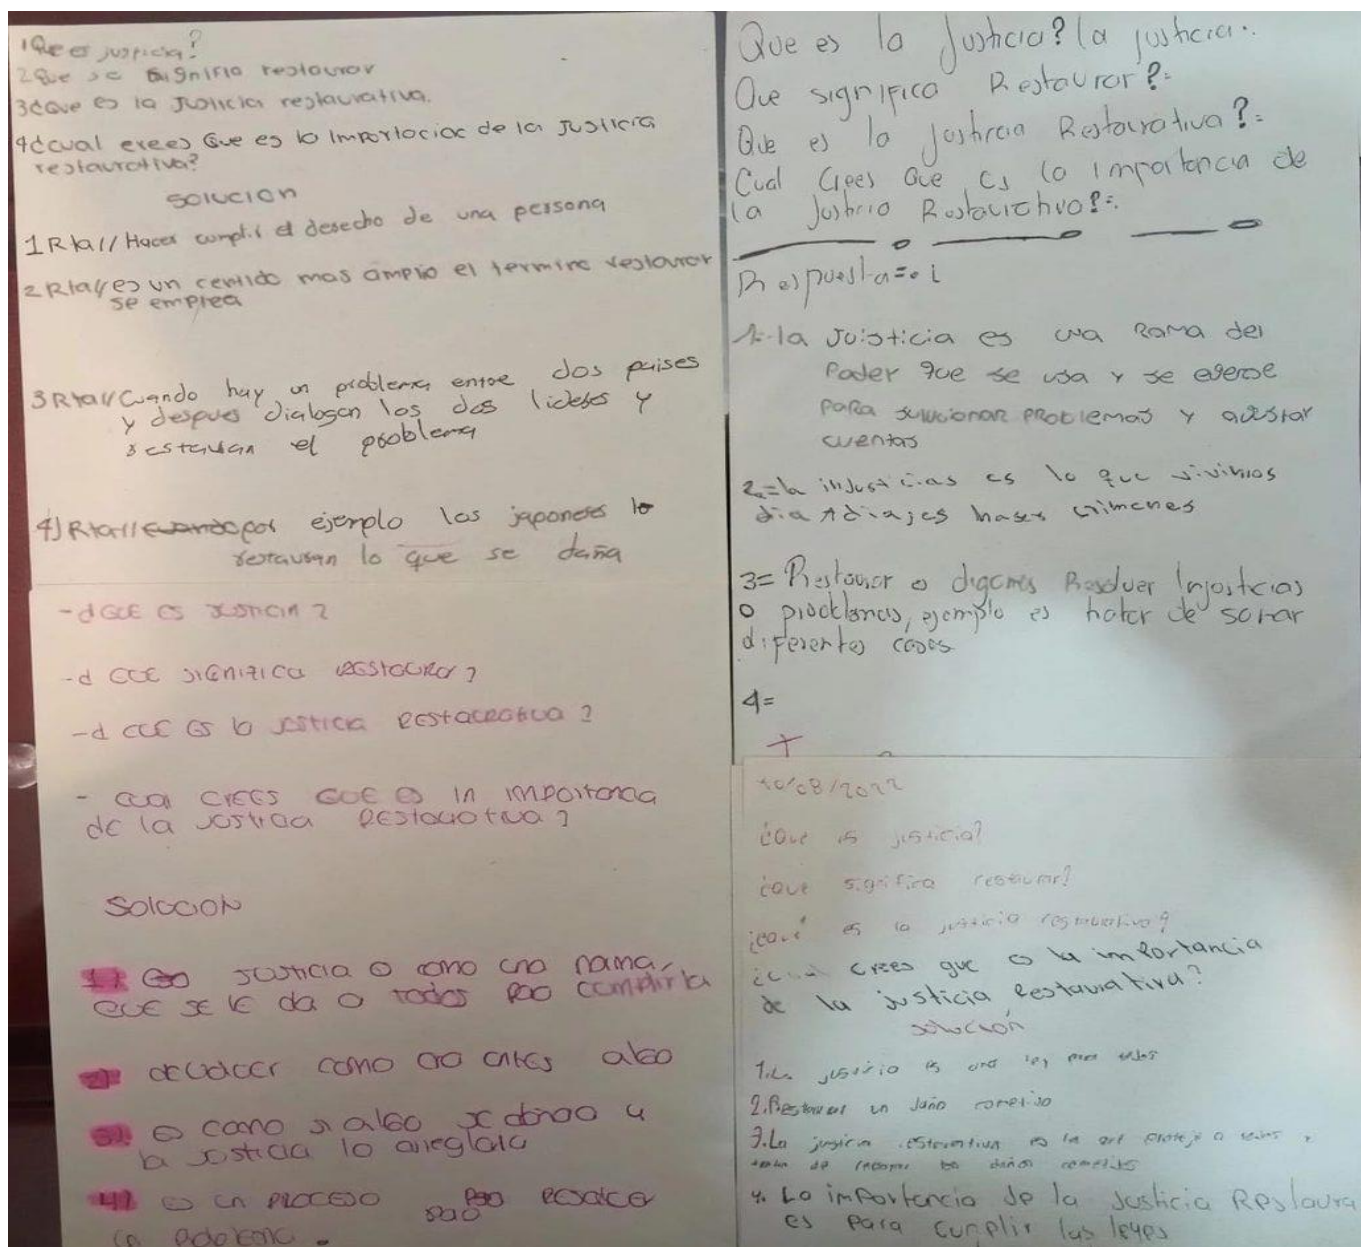 1 Que es justicia?
2 Que se significa restaurar
3 ¿Que es la Justicia restaurativa.
4 ¿cual crees Que es la Importaciac de la Justicia
restaurativa?
Solucion
1 Rta// Hacer cumplir el desecho de una persona
2 Rta// es un centido mas amplio el termino restaurar
se emplea
3 Rta// Cuando hay un problema entre dos paises
y despues dialogan los dos lideres y
restauran el problema
4) Rta// por ejemplo los japoneses
restauran lo que se daña
- ¿QUE ES JUSTICIA?
- ¿ QUE SIGNIFICA RESTAURAR?
- ¿ QUE ES la JUSTICIA RESTAURATIVA?
- CUAl CREES QUE ES lA IMPORTANCIA
DE la JUSTICIA RESTAURATIVA?
SOlUCION
1) JUSTICIA O como una rama,
QUE SE lE da a todos cumplirla
2) como antes algo
3) es como si algo se daño y
la justicia lo arreglara
4) es un PROCESO
Que es la justicia? la justicia..
Que significa Restaurar?:
Que es la justicia Restaurativa?:
Cual Crees Que es la importancia de
la Justicia Restaurativa?:.
Respuesta=. i
1.-la Juisticia es una Rama del
Poder que se usa y se egerse
para solucionar problemas y
cuentas
2=la injusticias es lo que vivimos
dia hases crimenes
3= Restaurar o digamos Resolver Injosticias
o problemas, ejemplo es
diferentes casos
4=
10/08/2022
¿Que is justicia?
¿Que significa restaurar?
¿Qué es la justicia restaurativa?
¿Cual crees que es la importancia
de la justicia Restaurativa?
solución
1.La justicia es una ley para todos
2.Restaurar un daño cometido
3.La justicia restaurativa es la que proteje a todos y
daños cometidos
4. La importancia de la Justicia Restaura
es para cumplir las leyes